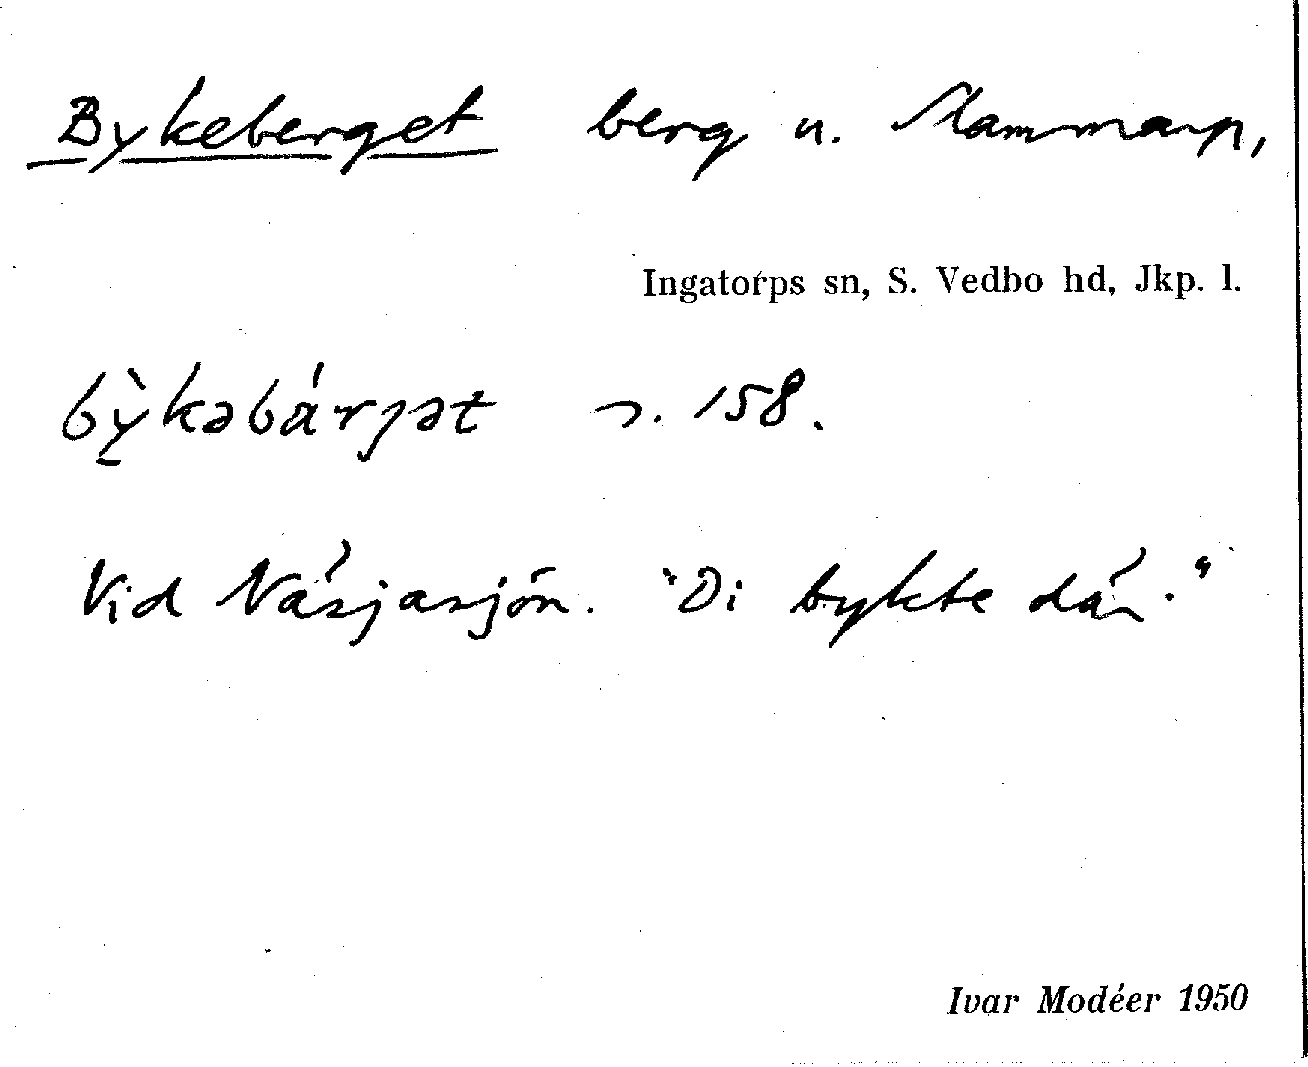 Bykeberget berg u. Mammarp,
Ingatorps sn, S. Vedbo hd, Jkp. l.
bỳkəbárjət s. 158.
Vid Näsjasjön. "Di bykte där."
Ivar Modéer 1950